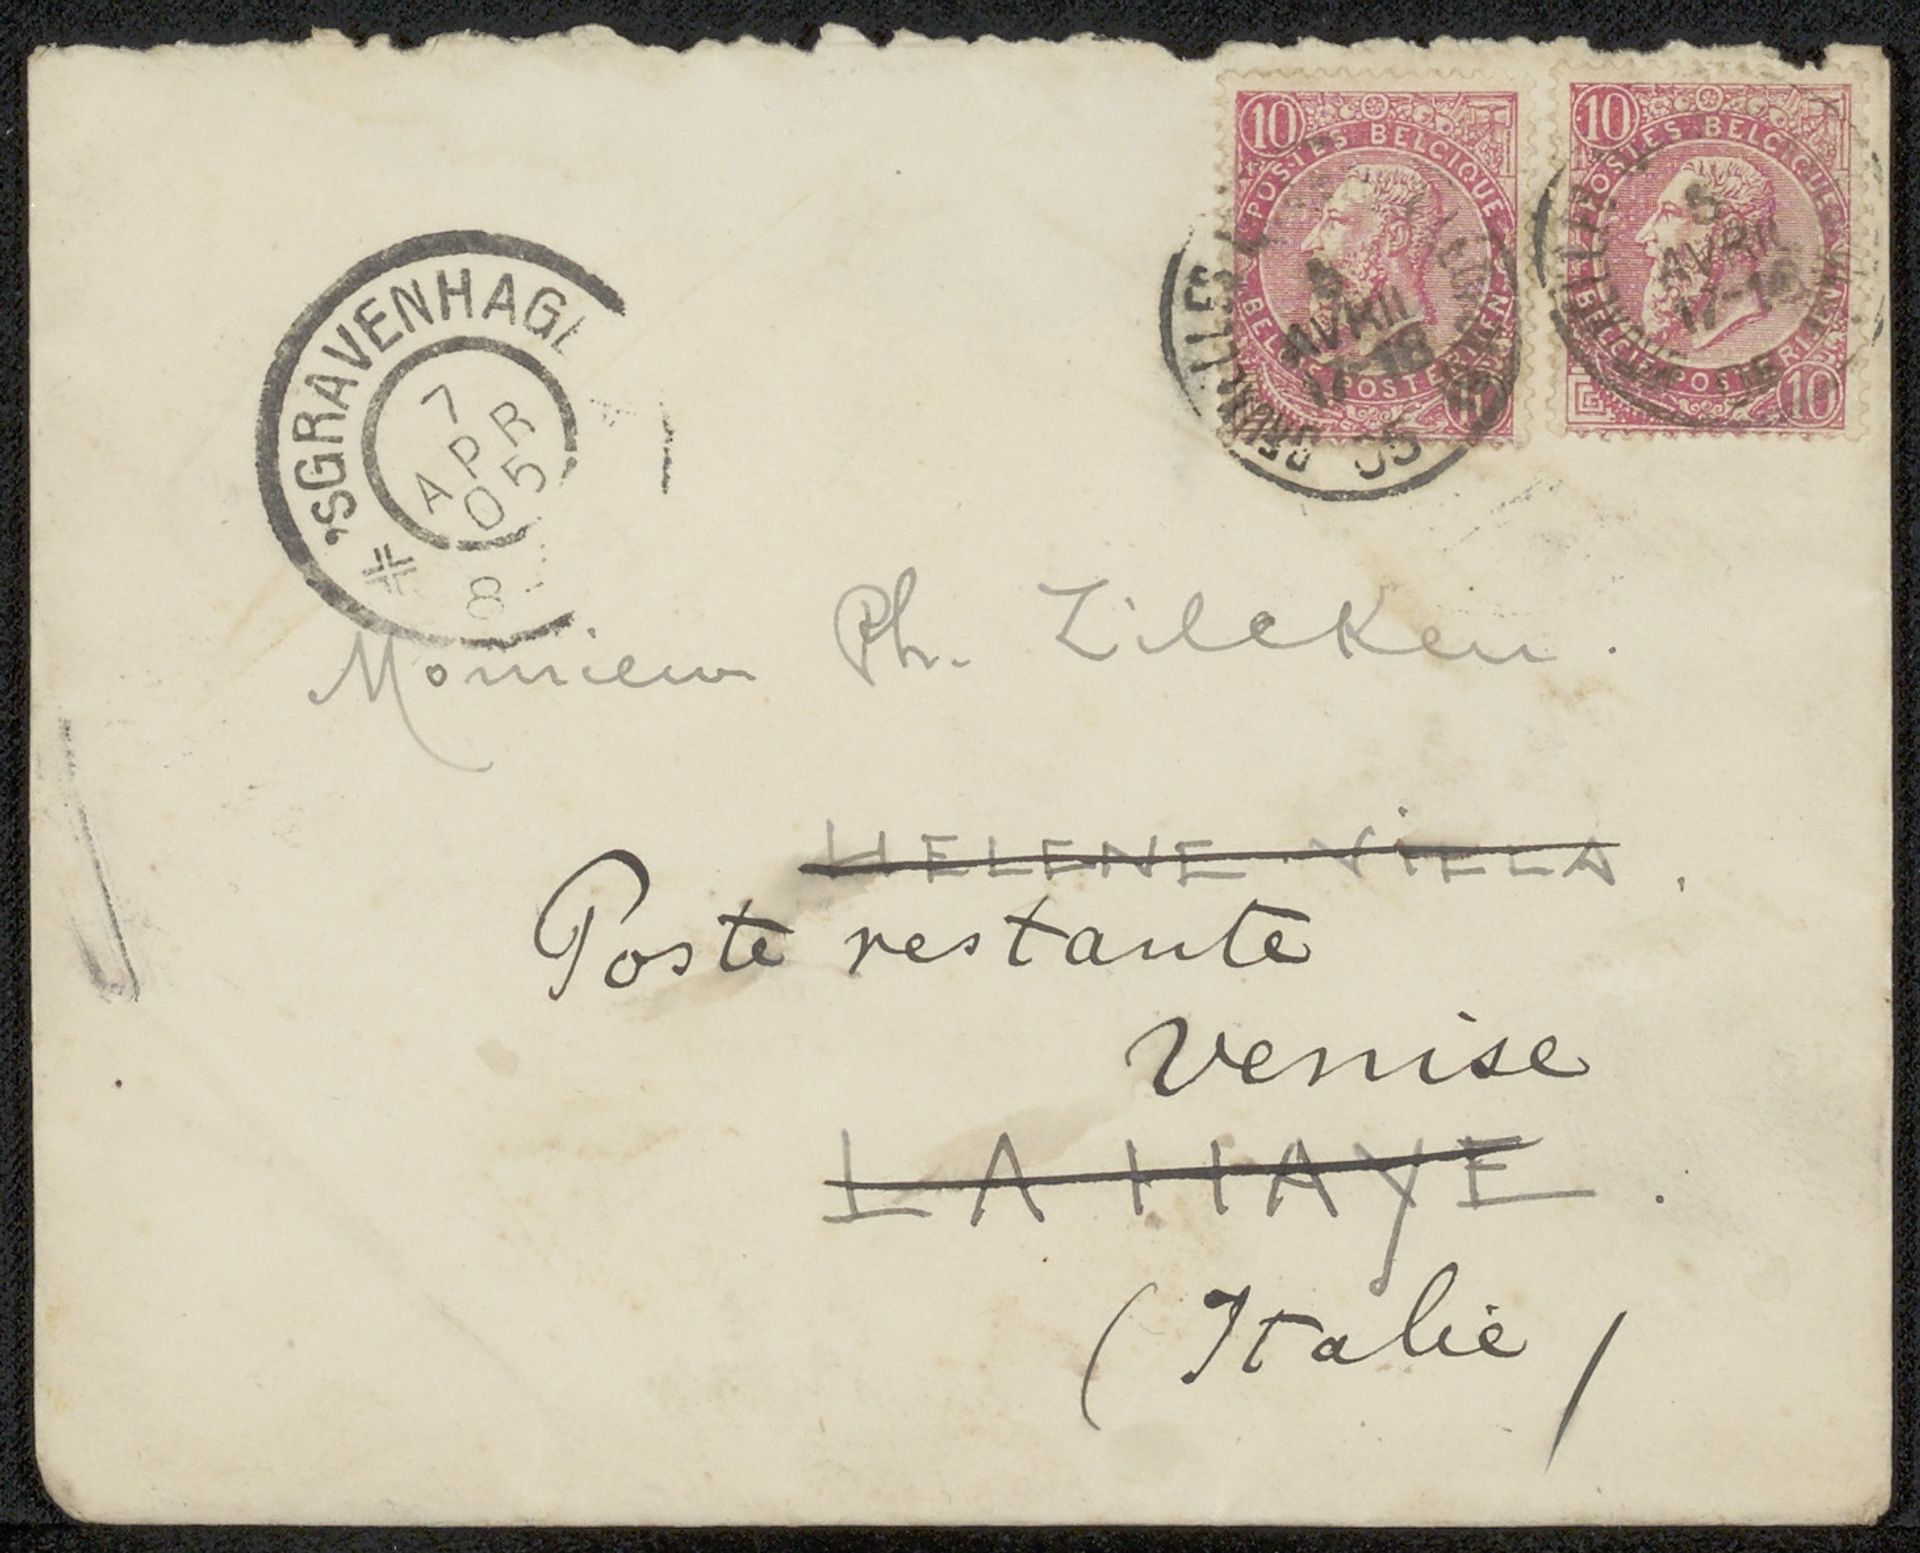 10
POSTES BELGIQUE
BELGIE POSTERIJEN
10
10
POSTES BELGIQUE
BELGIE POSTERIJEN
10
AVRIL
17-18
05
5
AVRIL
17-18
'SGRAVENHAGE
7
APR
05
8
Monsieur Ph. Zilcken.
HELENE VILLA.
Poste restante
Venise
LA HAYE.
(Italie)